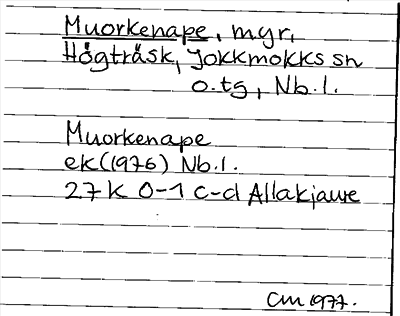 Muorkenape, myr,
Högträsk, Jokkmokks sn
o.tg, Nb.l.
Muorkenape
ek(1976) Nb.l.
27 K 0-1 c-d Allakjaure
CM 1977.